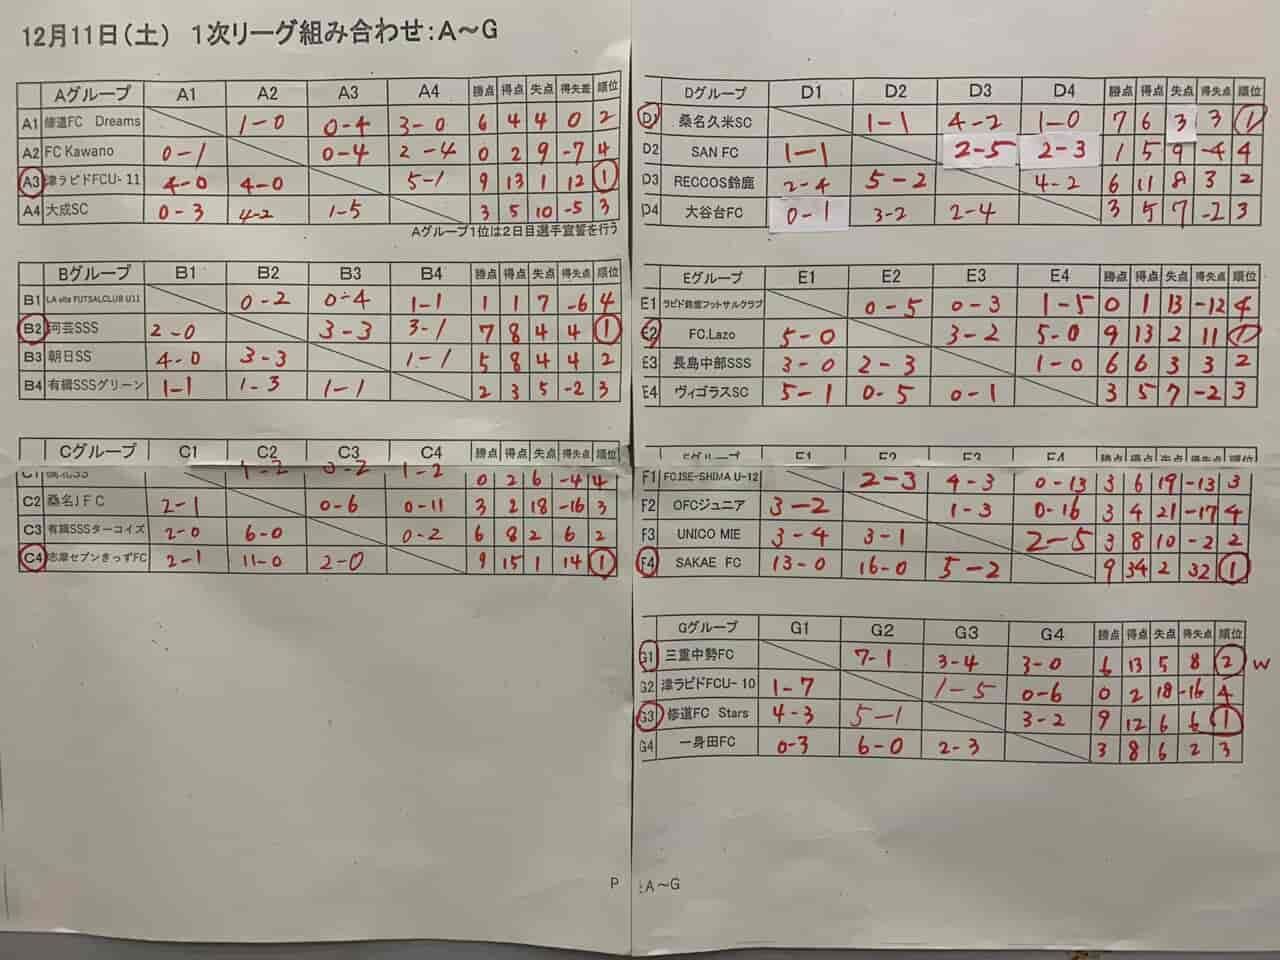 12月11日(土) 1次リーグ組み合わせ:A～G
Aグループ A1 A2 A3 A4 勝点 得点 失点 得失差 順位
A1 修道FC Dreams 1-0 0-4 3-0 6 4 4 0 2
A2 FC Kawano 0-1 0-4 2-4 0 2 9 -7 4
A3 津ラピドFCU-11 4-0 4-0 5-1 9 13 1 12 1
A4 大成SC 0-3 4-2 1-5 3 5 10 -5 3
Aグループ1位は2日目選手宣誓を行う
Bグループ B1 B2 B3 B4 勝点 得点 失点 得失点 順位
B1 LA vita FUTSALCLUB U11 0-2 0-4 1-1 1 1 7 -6 4
B2 河芸SSS 2-0 3-3 3-1 7 8 4 4 1
B3 朝日SS 4-0 3-3 1-1 5 8 4 4 2
B4 有緝SSSグリーン 1-1 1-3 1-1 2 3 5 -2 3
Cグループ C1 C2 C3 C4 勝点 得点 失点 得失点 順位
C1 1-2 0-2 1-2 0 2 6 -4 4
C2 桑名JFC 2-1 0-6 0-11 3 2 18 -16 3
C3 有緝SSSターコイズ 2-0 6-0 0-2 6 8 2 6 2
C4 志摩セブンきっずFC 2-1 11-0 2-0 9 15 1 14 1
Dグループ D1 D2 D3 D4 勝点 得点 失点 得失点 順位
D1 桑名久米SC 1-1 4-2 1-0 7 6 3 3 1
D2 SAN FC 1-1 2-5 2-3 1 5 9 -4 4
D3 RECCOS鈴鹿 2-4 5-2 4-2 6 11 8 3 2
D4 大谷台FC 0-1 3-2 2-4 3 5 7 -2 3
Eグループ E1 E2 E3 E4 勝点 得点 失点 得失点 順位
E1 ラピド鈴鹿フットサルクラブ 0-5 0-3 1-5 0 1 13 -12 4
E2 FC.Lazo 5-0 3-2 5-0 9 13 2 11 1
E3 長島中部SSS 3-0 2-3 1-0 6 6 3 3 2
E4 ヴィゴラスSC 5-1 0-5 0-1 3 5 7 -2 3
Fグループ F1 F2 F3 F4 勝点 得点 失点 得失点 順位
F1 FC.ISE-SHIMA U-12 2-3 4-3 0-13 3 6 19 -13 3
F2 OFCジュニア 3-2 1-3 0-16 3 4 21 -17 4
F3 UNICO MIE 3-4 3-1 2-5 3 8 10 -2 2
F4 SAKAE FC 13-0 16-0 5-2 9 34 2 32 1
Gグループ G1 G2 G3 G4 勝点 得点 失点 得失点 順位
G1 三重中勢FC 7-1 3-4 3-0 6 13 5 8 2 W
G2 津ラピドFCU-10 1-7 1-5 0-6 0 2 18 -16 4
G3 修道FC Stars 4-3 5-1 3-2 9 12 6 6 1
G4 一身田FC 0-3 6-0 2-3 3 8 6 2 3
P
A～G